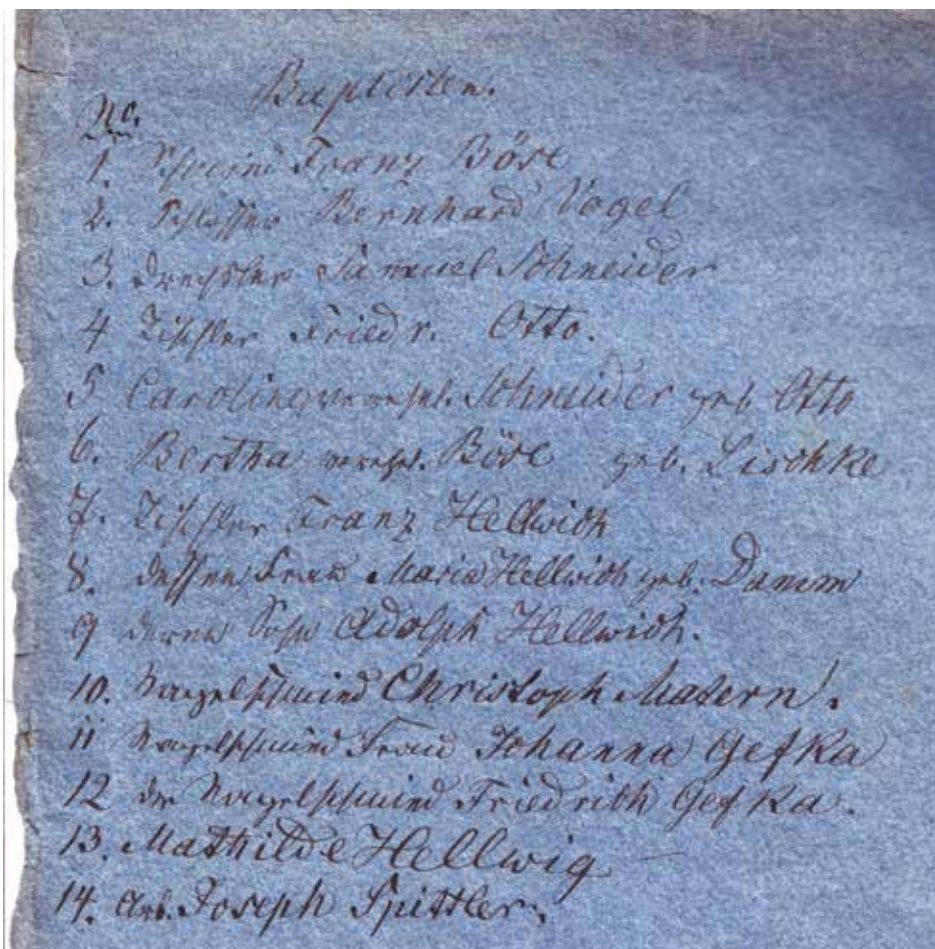 Baptisten.
No.
1. Schmied Franz Böse
2. Schlosser Bernhard Vogel
3. Drechsler Samuel Schneider
4 Tischler Friedr. Otto.
5 Caroline verehel. Schneider geb. Otto
6. Bertha verehel. Böse geb. Lischke
7. Tischler Franz Hellwich
8. dessen Frau Maria Hellwich geb. Damm
9 deren Sohn Adolph Hellwich.
10. Nagelschmied Christoph Matern.
11 Nagelschmied Frau Johanna Gefka
12 der Nagelschmied Friedrich Gefka.
13. Mathilde Hellwig
14. Arb. Joseph Spittler.